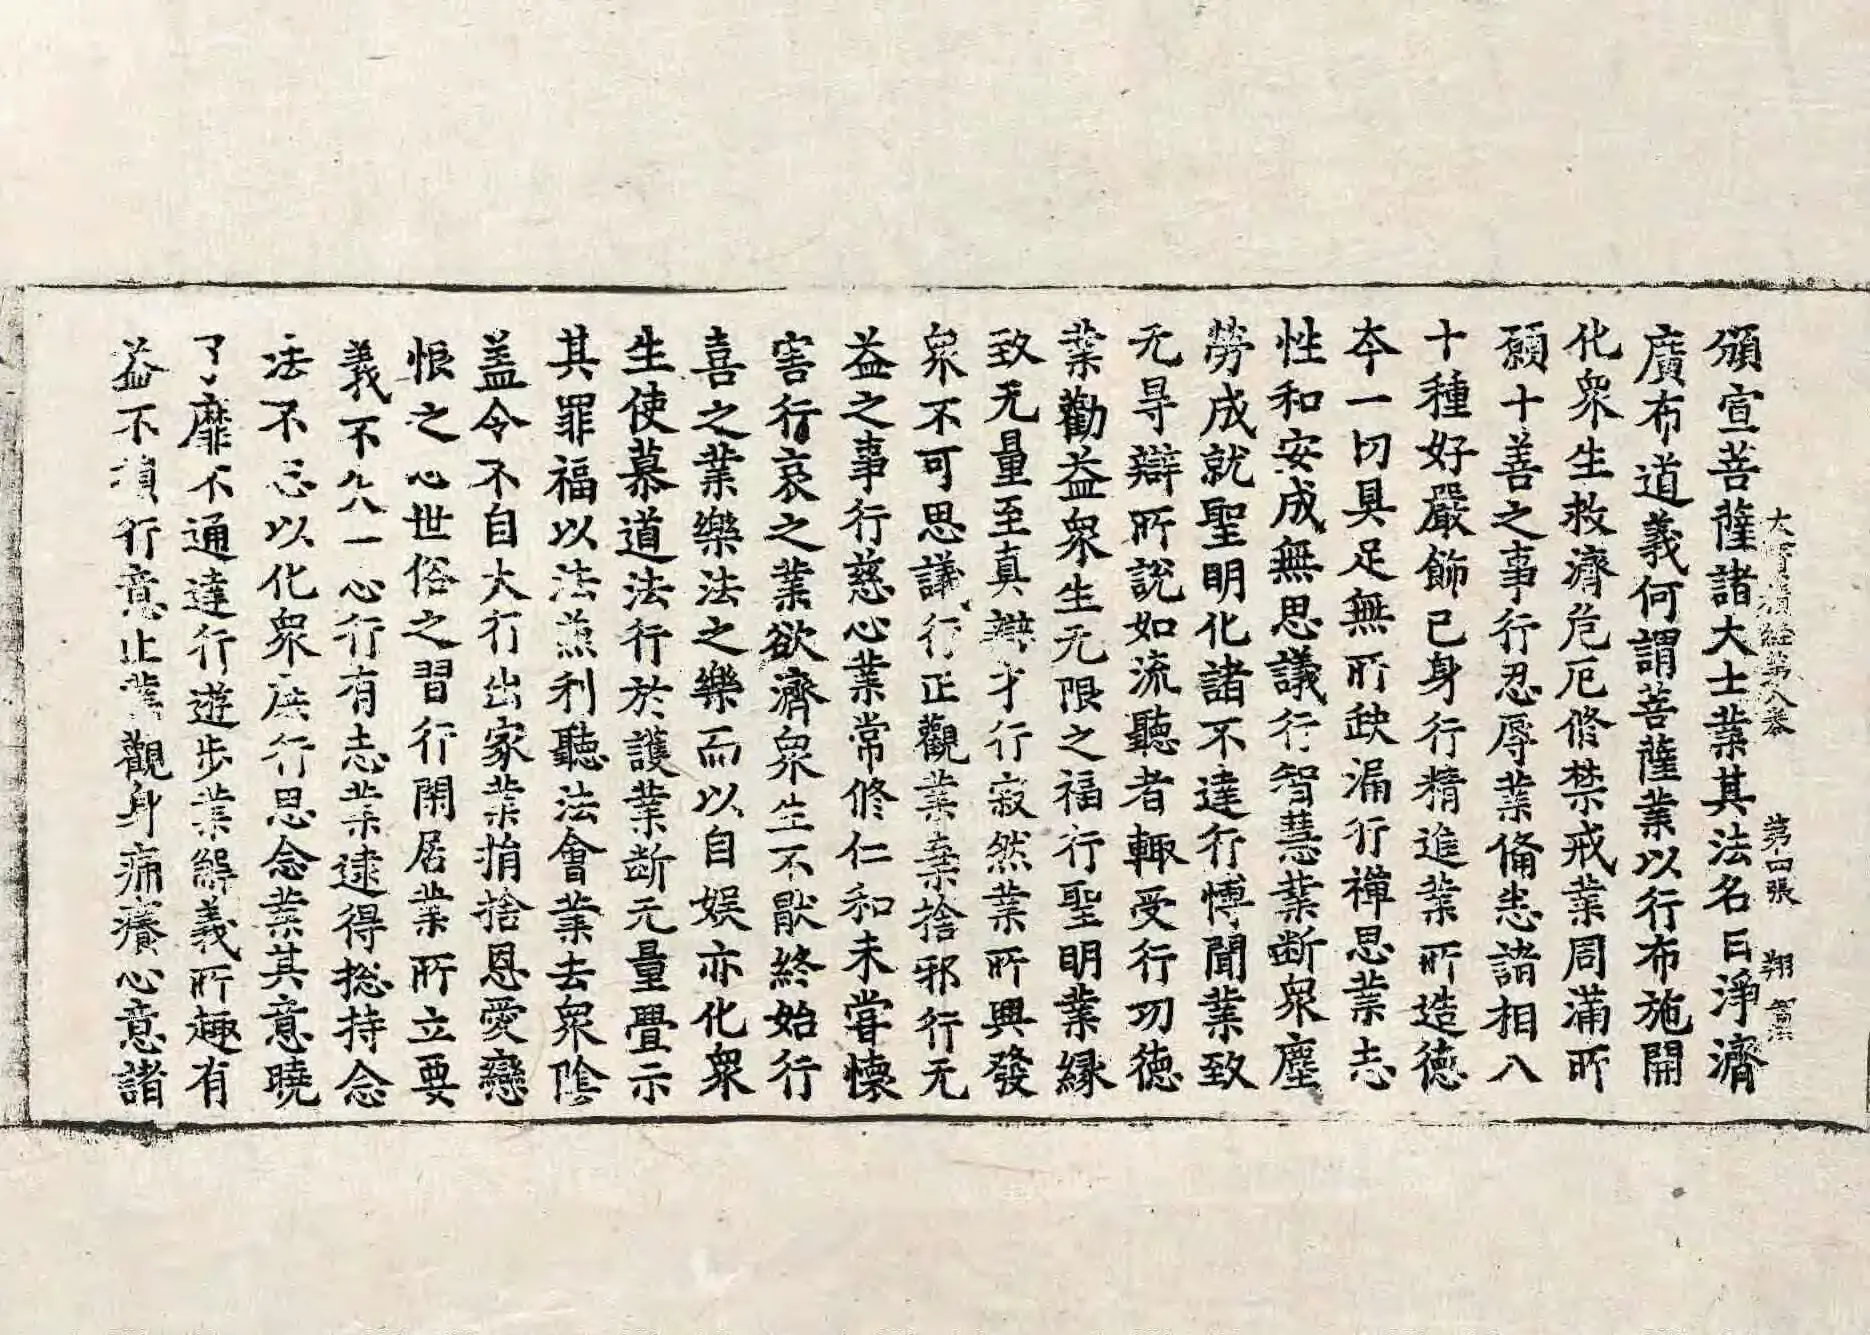 大寶積經第八卷 第四張 翔
頒宣菩薩諸大士業其法名曰淨濟
廣布道義何謂菩薩業以行布施開
化衆生救濟危厄脩禁戒業周滿所
願十善之事行忍辱業備悉諸相八
十種好嚴飾已身行精進業所造德
夲一切具足無所缺漏行禪思業志
性和安成無思議行智慧業断衆塵
勞成就聖明化諸不達行慱聞業致
无㝵辯所說如流聽者輙受行功德
業勸益衆生无限之福行聖明業縁
致无量至真辯才行寂然業所興發
衆不可思議行正觀業棄捨邪行无
益之事行慈心業常修仁和未甞懷
害行哀之業欲濟衆生不猒終始行
喜之業樂法之樂而以自娱亦化衆
生使慕道法行於護業断无量疊示
其罪福以法兼利聽法會業去衆陰
盖令不自大行出家業捐捨恩愛戀
恨之心世俗之習行閑居業所立要
義不失一心行有志業逮得捴持念
法不忘以化衆庶行思念業其意曉
了靡不通達行遊步業解義所趣有
益不損行意止業觀身痛癢心意諸